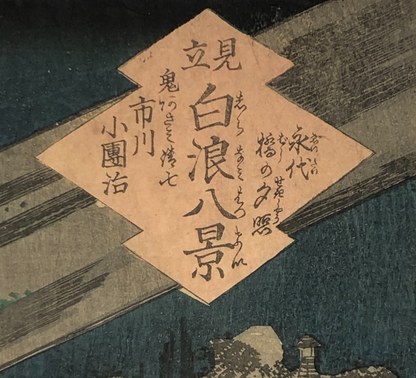 見立
白浪八景
永代
橋の夕照
鬼あさミ清七
市川
小團治